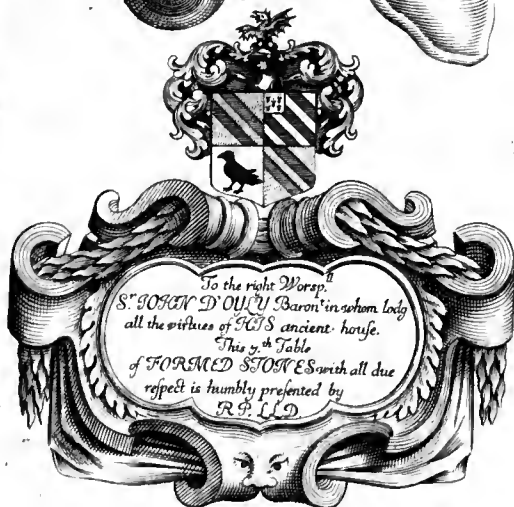 To the right Worsp.ll
Sr. IOHN D'OULY Baront. in whom lodg
all the virtues of HIS ancient house.
This 7.th Table
of FORMED STONES with all due
respect is humbly presented by
R.P. LLD.